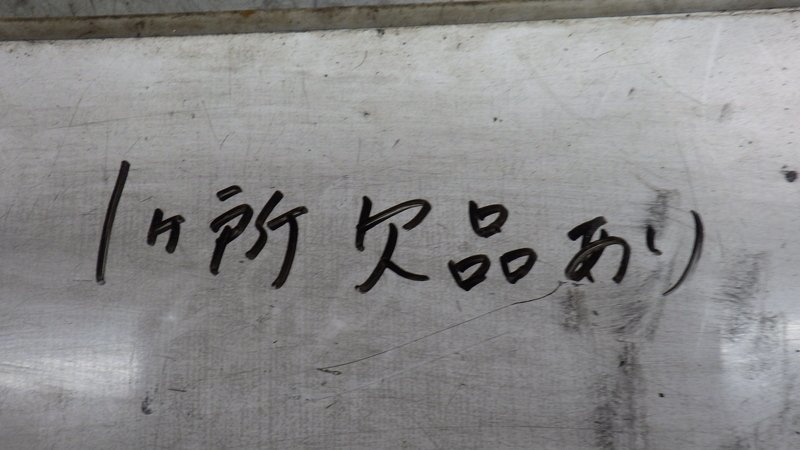 1ヶ所 欠品あり